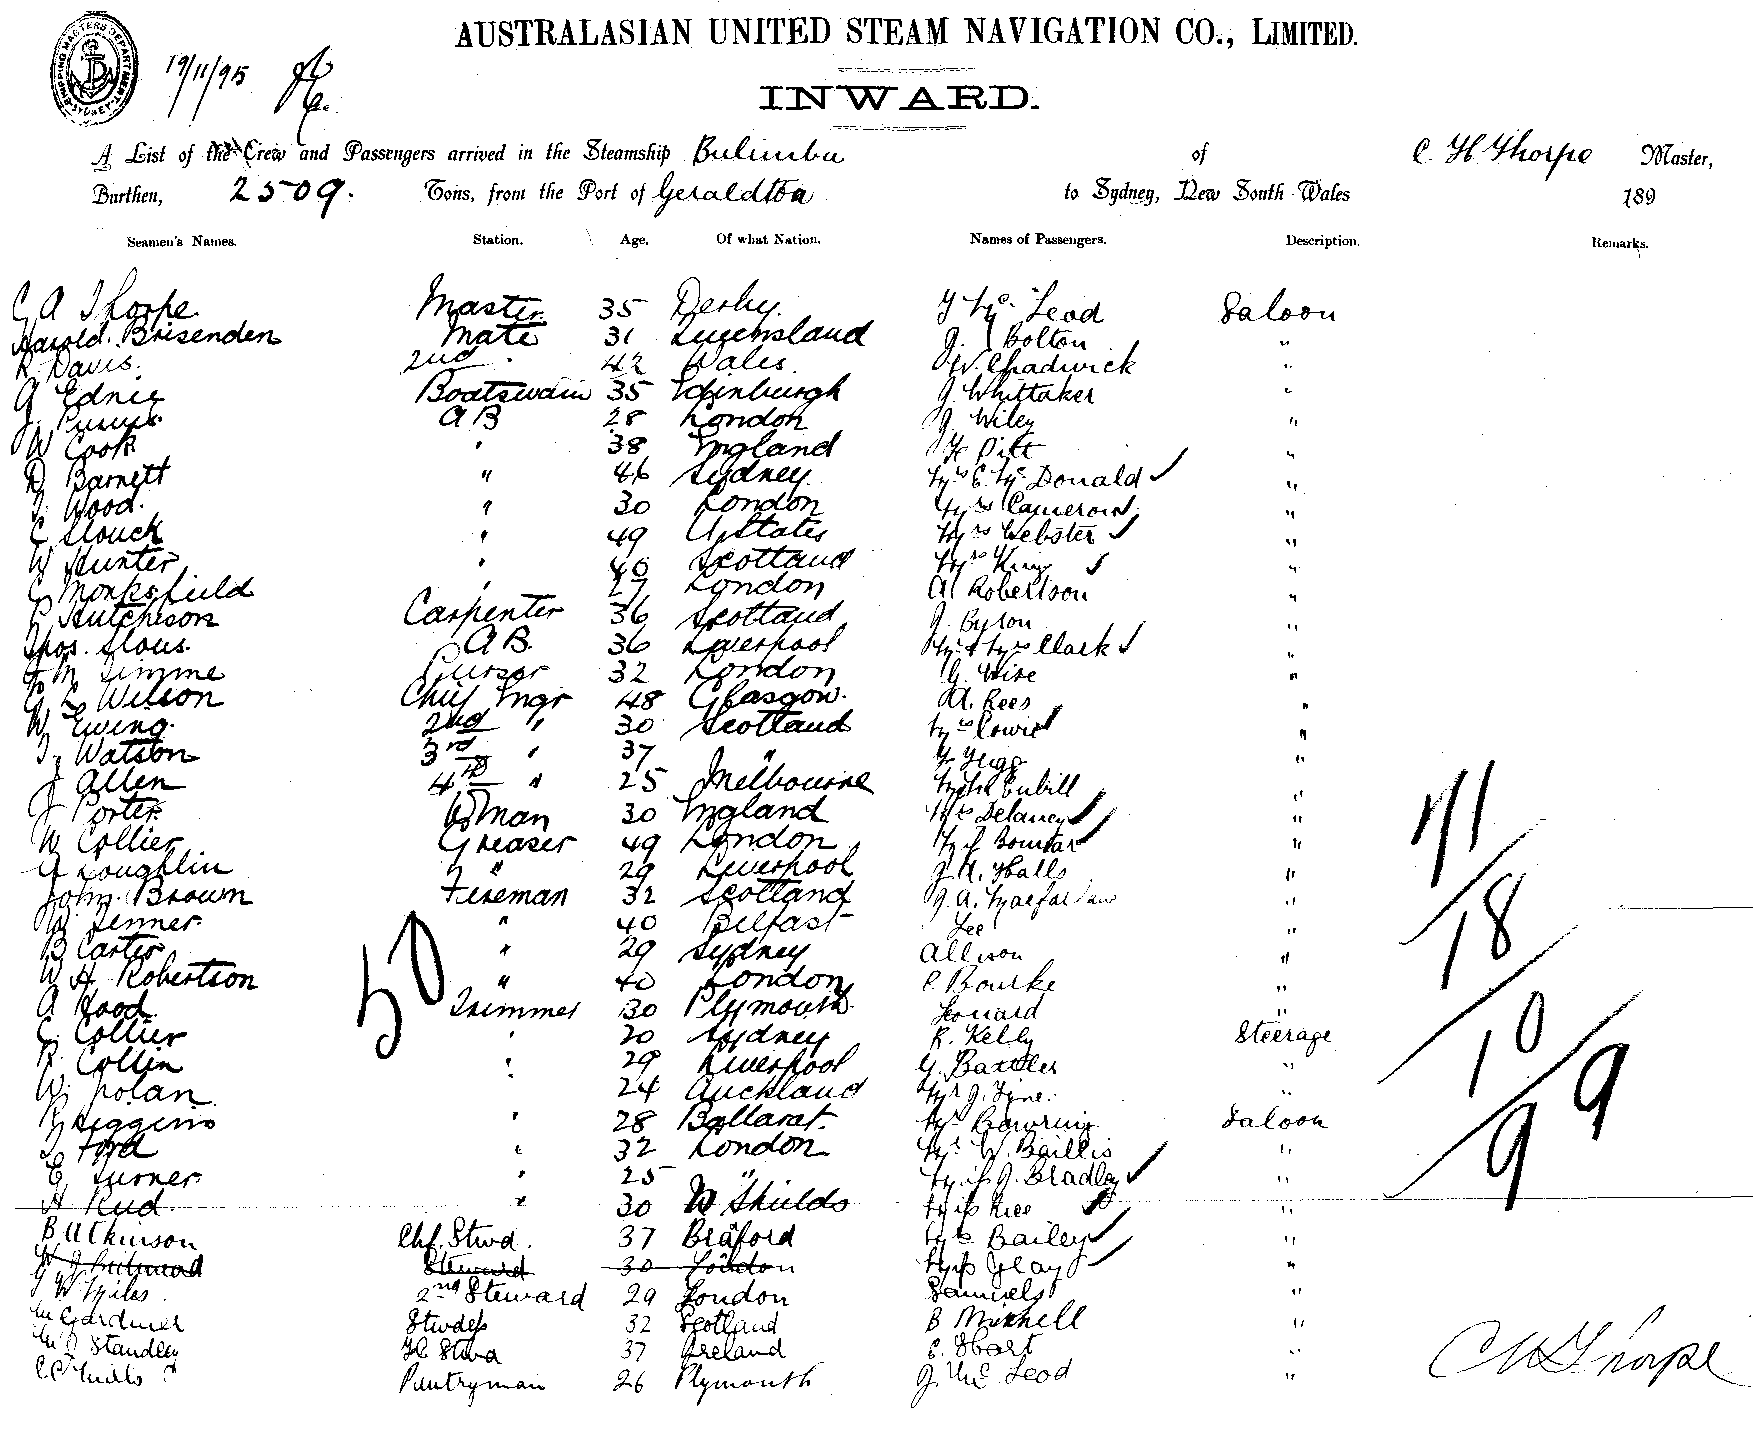 SHIPPING MASTERS DEPARTMENT SYDNEY
19/11/95
AUSTRALASIAN UNITED STEAM NAVIGATION CO., LIMITED.
INWARD.
A List of the Crew and Passengers arrived in the Steamship Bulimba of C. H Thorpe Master,
Burthen, 2509. Tons, from the Port of Geraldton to Sydney, New South Wales 189
Seamen's Names. Station. Age. Of what Nation. Names of Passengers. Description. Remarks.
C A Thorpe Master 35 Derby Mc Leod Saloon
Harold Brisenden Mate 31 Queensland J. Bolton "
R Davis. 2nd " 42 Wales. W. Chadwick "
Ednie Boatswain 35 Edinburgh J. Whittaker "
J. AB 28 London J. Wiley "
W Cook " 38 England Pitt "
D Barnett " 46 Sydney Mrs E. Mc Donald ✓ "
Wood. " 30 London Mrs Cameron "
C Slouck " 49 U States Mrs Webster ✓ "
W Hunter " 40 Scotland Mrs King ✓ "
C Monksfield " 27 London A Robertson "
R Hutcheson Carpenter 36 Scotland J. Byron "
Thos. Slous. AB. 36 Liverpool Mr & Mrs Clark ✓ "
Timme Purser 32 London G. Wise "
Wilson Chief Engr 48 Glasgow. A. Rees "
W Ewing. 2nd " 30 Scotland Mrs Cowie ✓ "
Watson 3rd " 37 " "
J Allen 4th " 25 Melbourne "
J Porter 30 England Mrs Delaney ✓ "
W Collier Greaser 49 London ✓ "
Loughlin " 29 Liverpool J. A. Halls "
John Brown Fireman 32 Scotland J. A. "
Jenner " 40 Belfast Lee "
B Carter " 29 Sydney Allison "
W H Robertson " 40 London C Bourke "
A Hood Trimmer 30 Plymouth Leonard "
C. Collier " 20 Sydney R. Kelly Steerage
R. Collin " 29 Liverpool G. Baxter "
W. Nolan 24 Auckland Mr J. Fyne. "
Higgins " 28 Ballarat. Mr Bowring Saloon
Ford " 32 London Mr W. Baillis "
E. Turner " 25 " Miss J. Bradley ✓ "
A Reid " 30 N Shields Miss Rees "
B Atkinson Chf. Stwd. 37 Braford Mrs Bailey ✓ "
Steward 30 London Miss Gray ✓ "
Miles 2nd Steward 29 London Samuels "
Gardiner Stwdess 32 Scotland B Mitchell "
Standley Stwd 37 Ireland E. Hart "
Pantryman 26 Plymouth J. Mc Leod "
50
71
18
10
9
9
C H Thorpe